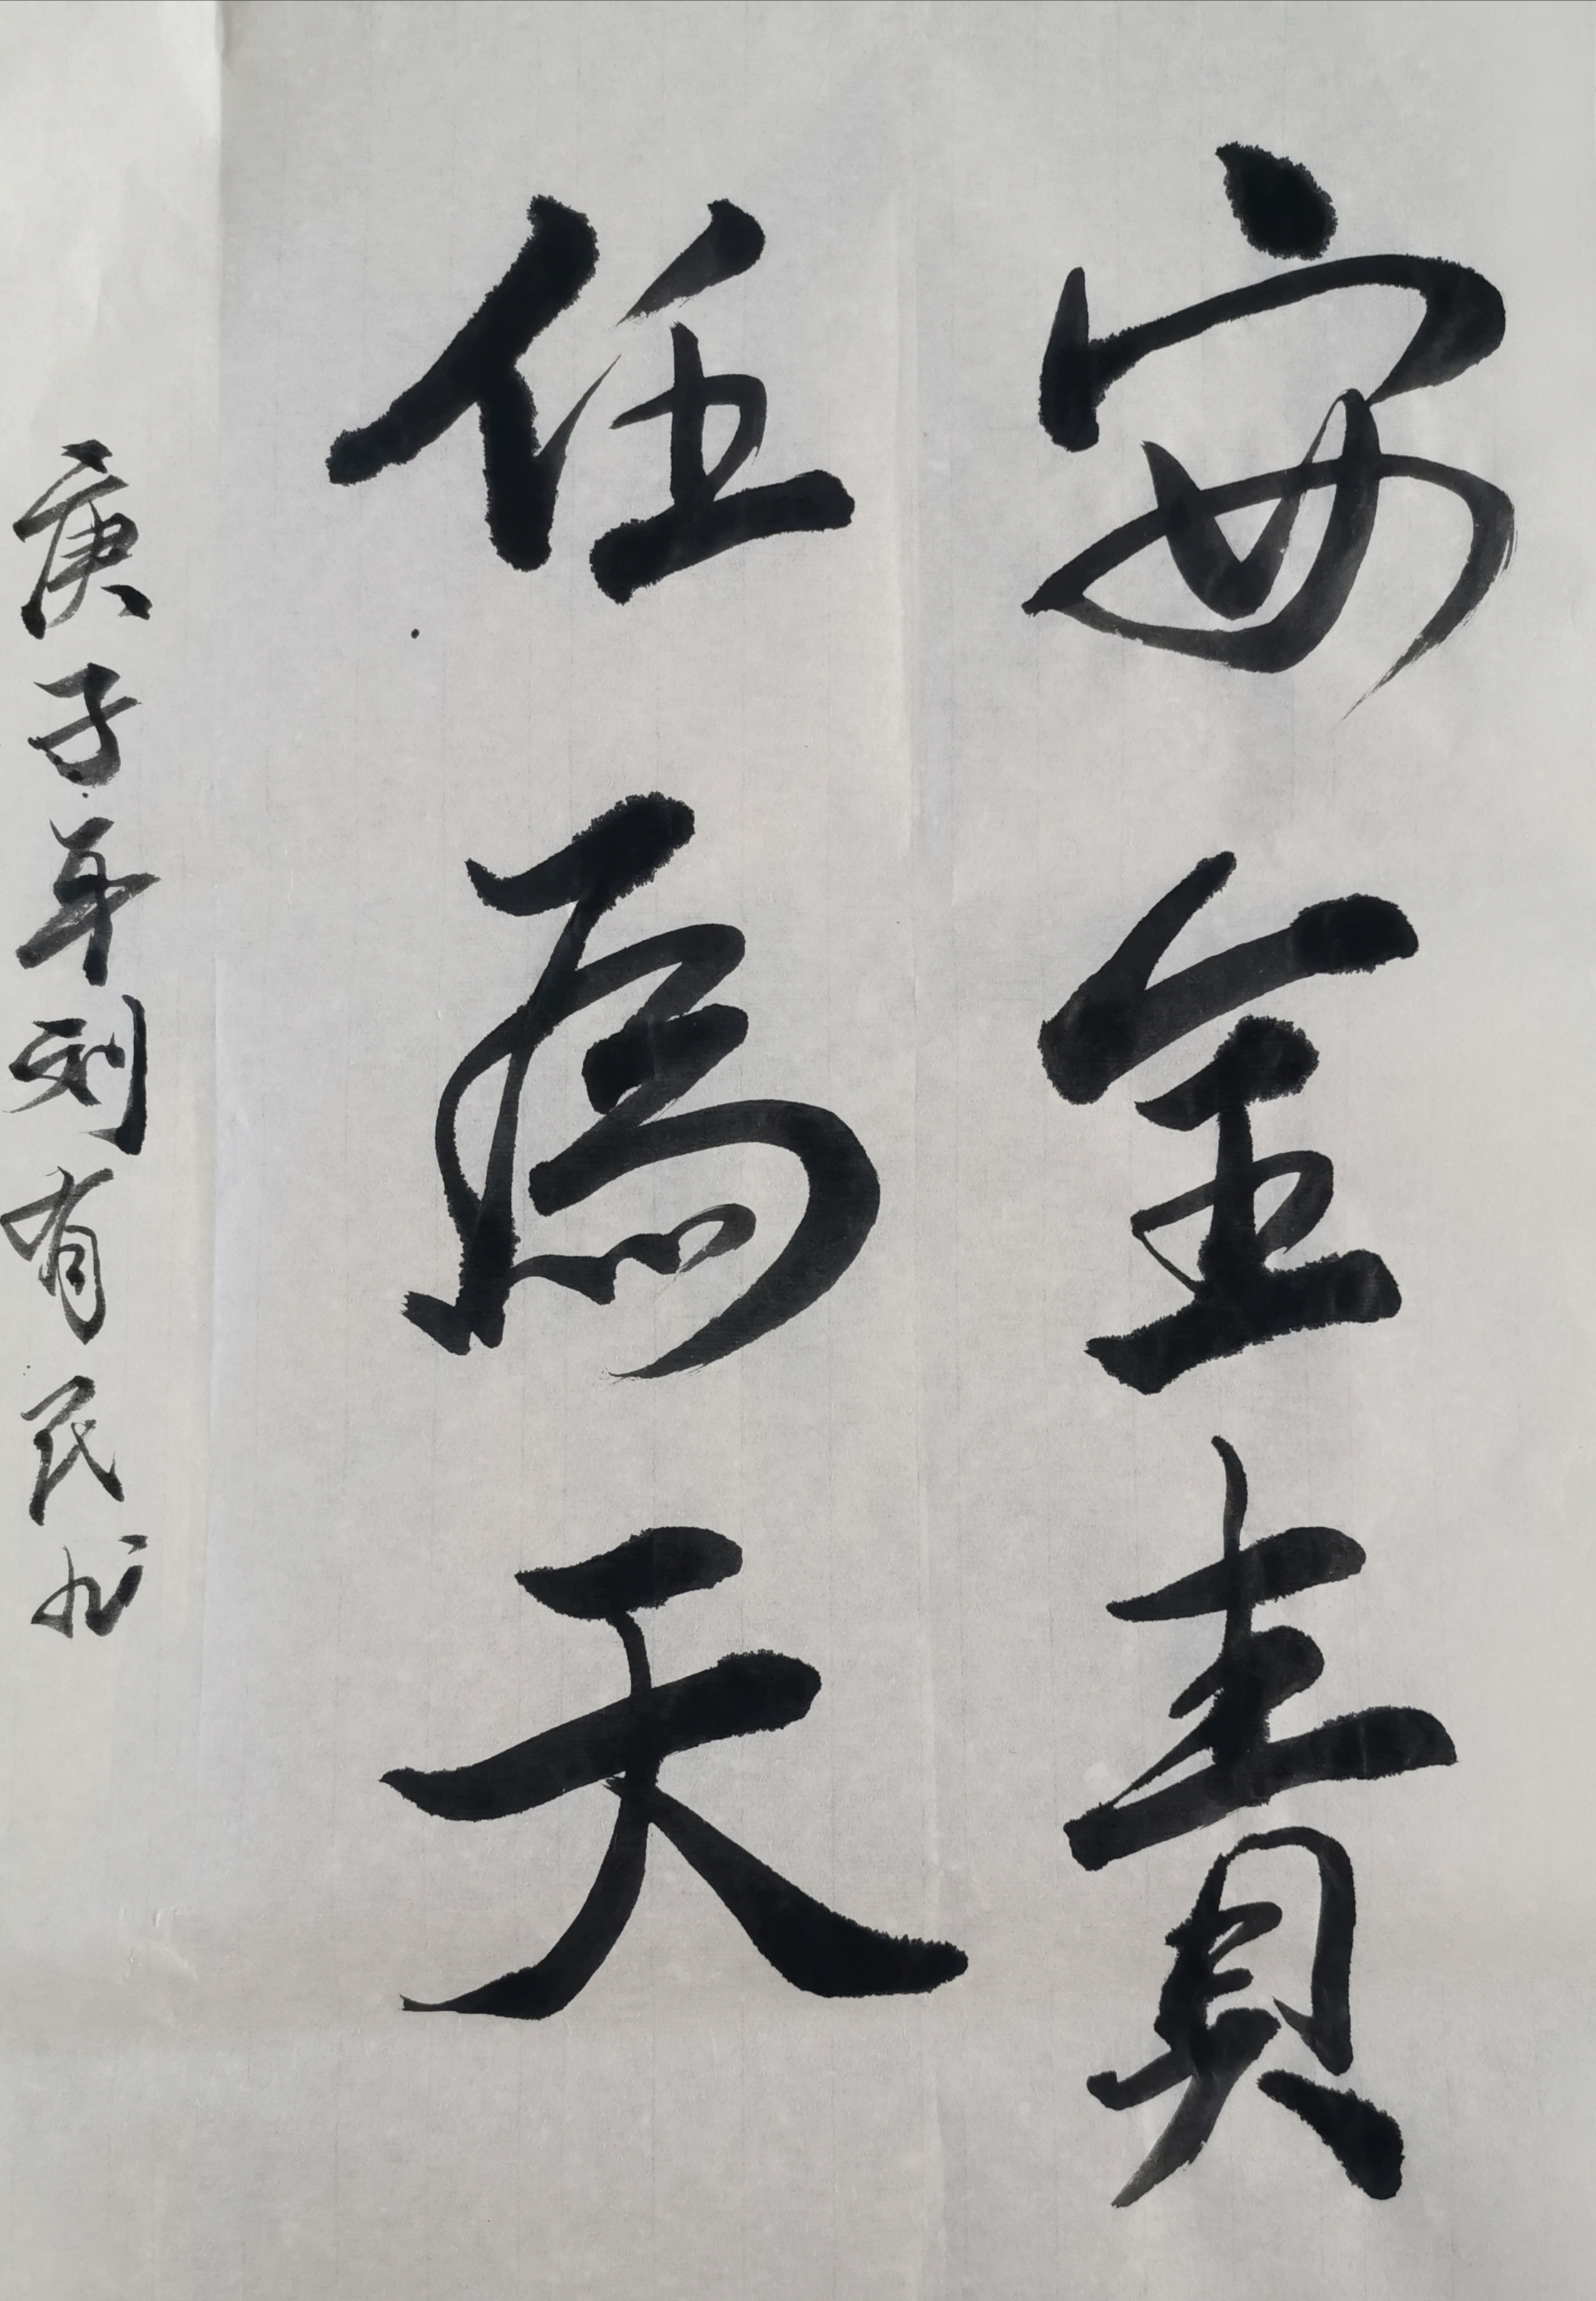 安全責
任為天
庚子年刘有民书